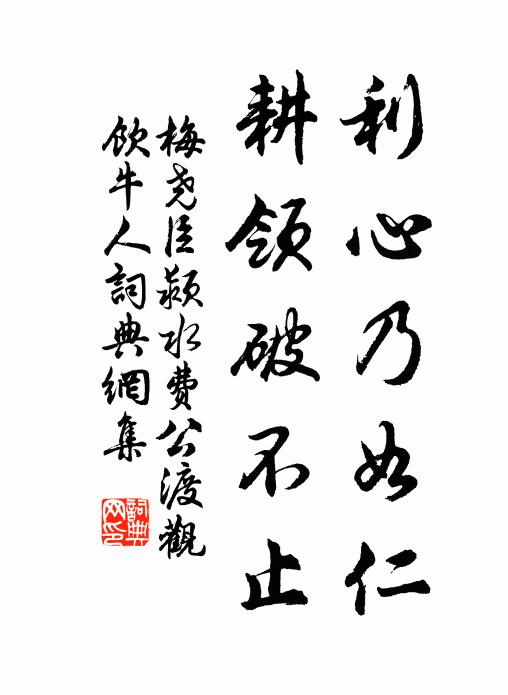 利心乃如仁
耕領破不止
梅尧臣颍水費公渡觀
飲牛人詞典網集
詞典
网印